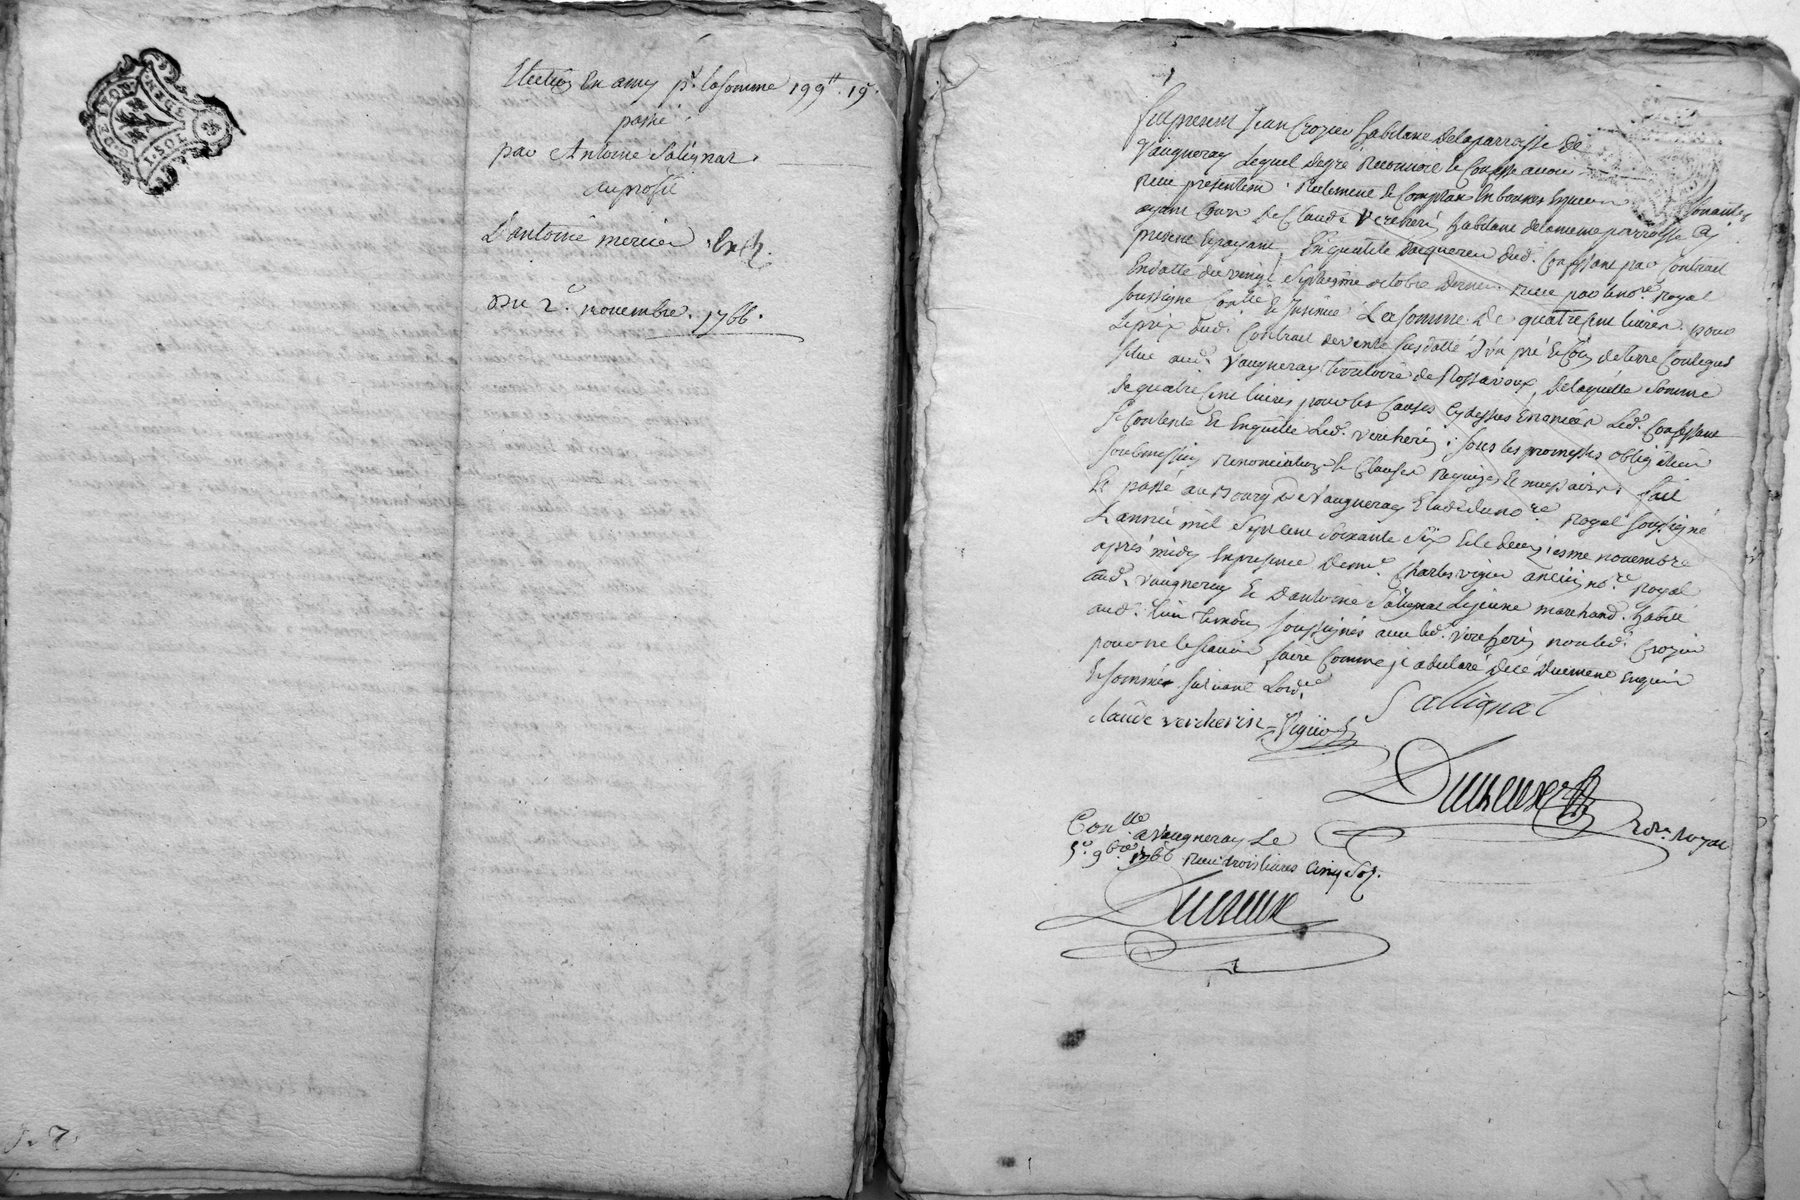 G. DE LYON
SOLS
DEN
Election En amy pr. la somme 199tt. 19s.
passé
par Antoine Salignat.
au profit
D'antoine mercier
Du 2e. novembre. 1766.
Fut présent Jean Crozier habitant de la parroisse de
Vaugneray Lequel de gré Reconnoit et Confesse avoir
Receu présentemt. Réelement et Comptant En bonnes Espèces Sonnantes
ayant Cours de Claude Vercherin habitant de la meme parroisse Cy
présent Et payant, En qualité d'acquereur dud. Confessant par Contract
En datte du vingt Septième octobre Dernier Receu par le nore. royal
soussigné Conllé. Et Insinué La somme de quatre Cent livres pour
Le prix dud. Contract de vente susdatté D'un pré Et Coin de terre Contigus
situé aud. Vaugneray territoire de Rossavoux, De laquelle Somme
de quatre Cent livres pour les Causes Cy dessus Enoncées Led. Confessant
Se Contente Et En quitte Led. Vercherin; sous les promesses obligation
soubmission Renonciation Et Clauses Requises Et nécessaires fait
Et passé au Bourg de Vaugneray Etude du nore. Royal soussigné
L'année mil Sept Cent Soixante Six Et le deuxiesme novembre
après midy En présence De me. Charles vigier ancien nore. royal
aud. Vaugneray Et D'antoine Salignat Le jeune marchand habitt.
aud. lieu temoins soussignés avec led. Vercherin non led. Crozier
pour ne le scavoir faire Comme il a declaré De ce Duement Enquis
Et sommé suivant L'ordce.
Sallignat
claude vercherin Vigier
Ducreux
nore. royal
Conllé. a Vaugneray Le
5e. 9bre. 1766 Receu trois livres Cinq Sols.
Ducreux